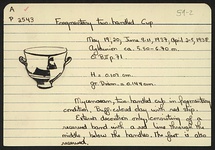 A
P 2543
Fragmentary two-handled Cup
May 19, 20, June 9-11, 1937, April 2-5, 1938.
H = 0.107 m.
gr. Diam. = 0.144 m.
Mycenaean, two handled cup in fragmentary
condition. Buff-colored clay with red slip.
Exterior decoration only, consisting of a
reserved band with a red line through the
middle, below the handles. The foot is also
reserved.